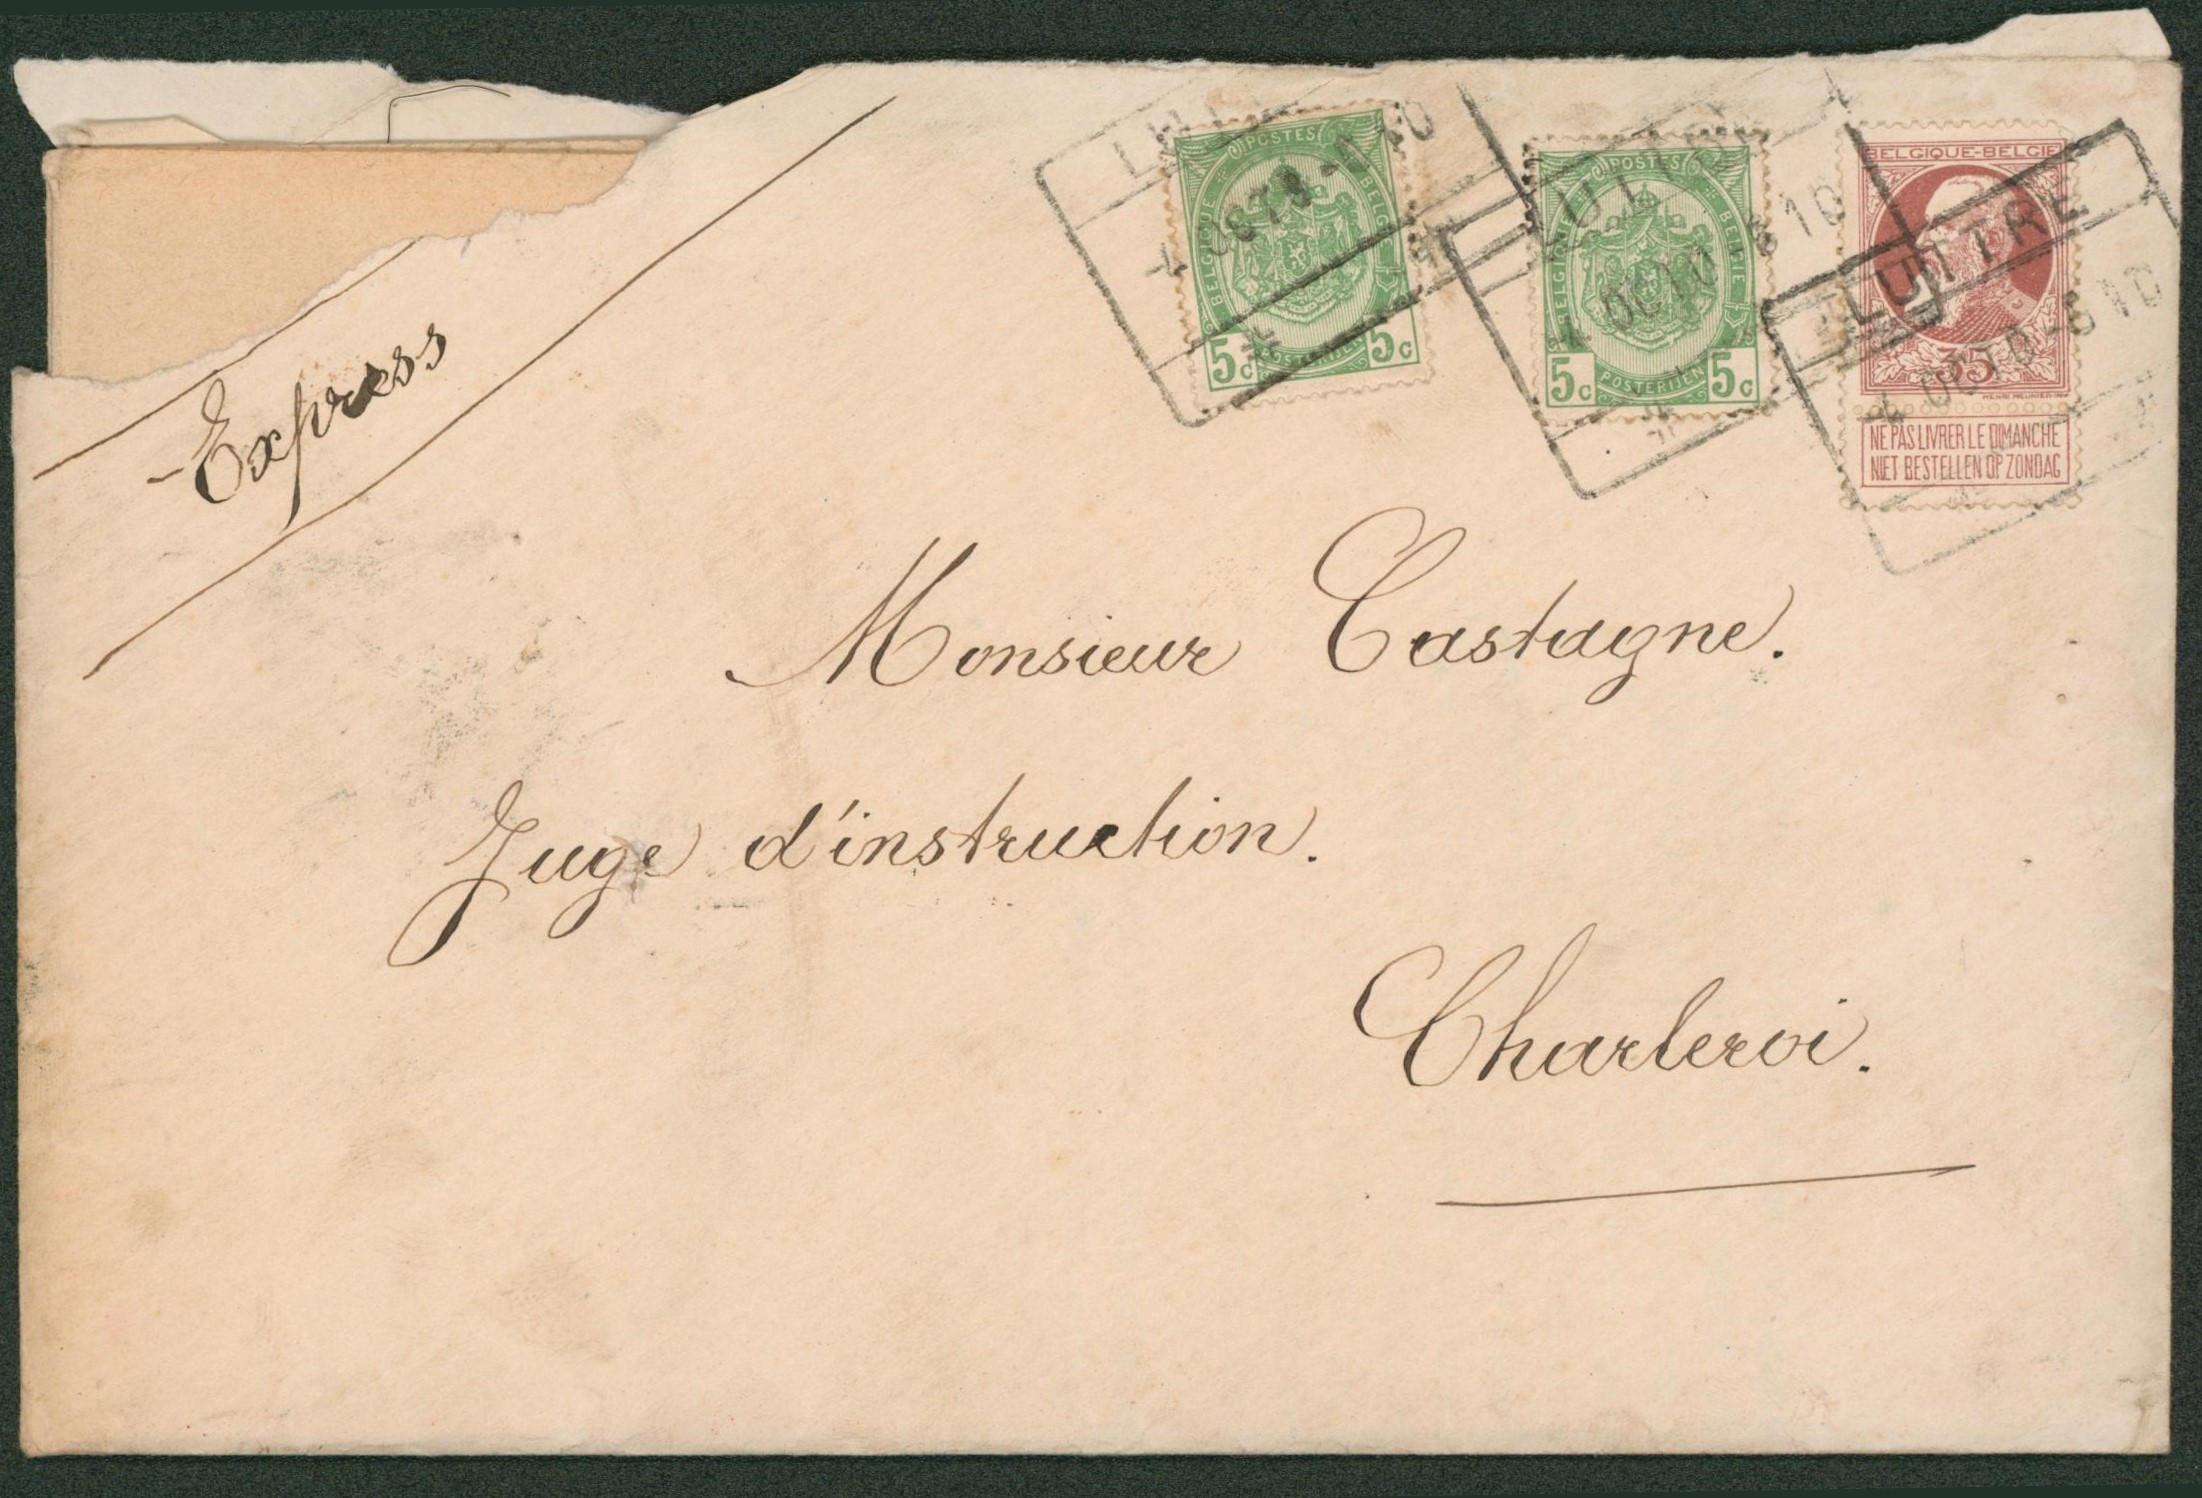 Express
POSTES
BELGIQUE BELGIE
5c 5c
POSTERIJEN
POSTES
BELGIQUE BELGIE
5c 5c
POSTERIJEN
BELGIQUE-BELGIË
35
HENRI MEUNIER-INV
NE PAS LIVRER LE DIMANCHE
NIET BESTELLEN OP ZONDAG
LUTTRE
Monsieur Castagne.
Juge d'instruction.
Charleroi.